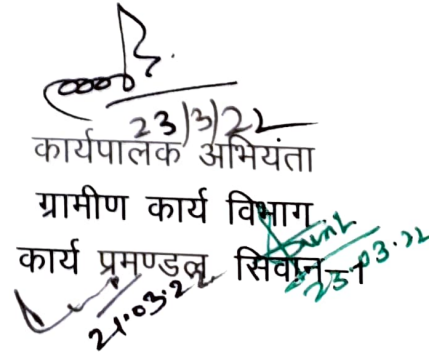 23/3/22
कार्यपालक अभियंता
ग्रामीण कार्य विभाग
कार्य प्रमण्डल, सिवान-1
23.03.22
21.03.22